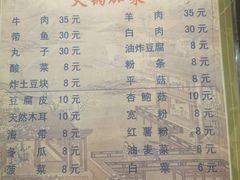 火锅加菜
牛肉 35元 羊肉 35元
带鱼 30元 白肉 30元
丸子 30元 油炸豆腐 8元
酸菜 8元 粉条 8元
炸土豆块 8元 平菇 8元
豆腐皮 10元 杏鲍菇 10元
天然木耳 10元 宽粉 10元
海带 8元 红薯粉 8元
冬瓜 8元 油麦菜 8元
菠菜 8元 白菜 6元